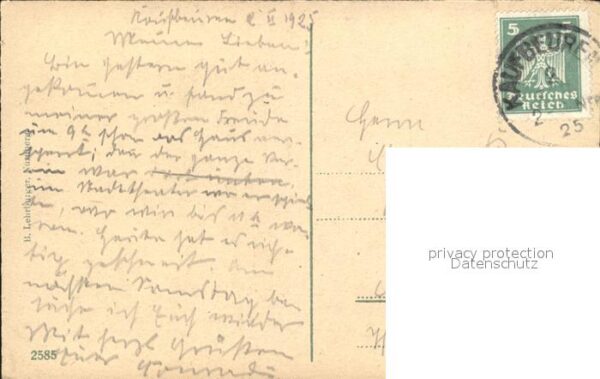 Kaufbeuren 2 II 1925
Meine Lieben!
Bin gestern gut an-
gekommen u. fand zu
meiner großen Freude
um 9h schon das Haus ver-
sperrt; da der ganze Ver-
ein war
im Stadttheater
wir bis 11h wa-
ren. Heute hat es rich-
tig geschneit. Am
nächsten Samstag be-
suche ich Euch wieder
Mit herzl Grüßen
Euer
Herrn
B. Lehrburger, Nürnberg
2585
5
Deutsches
Reich
KAUFBEUREN
2
25
privacy protection
Datenschutz